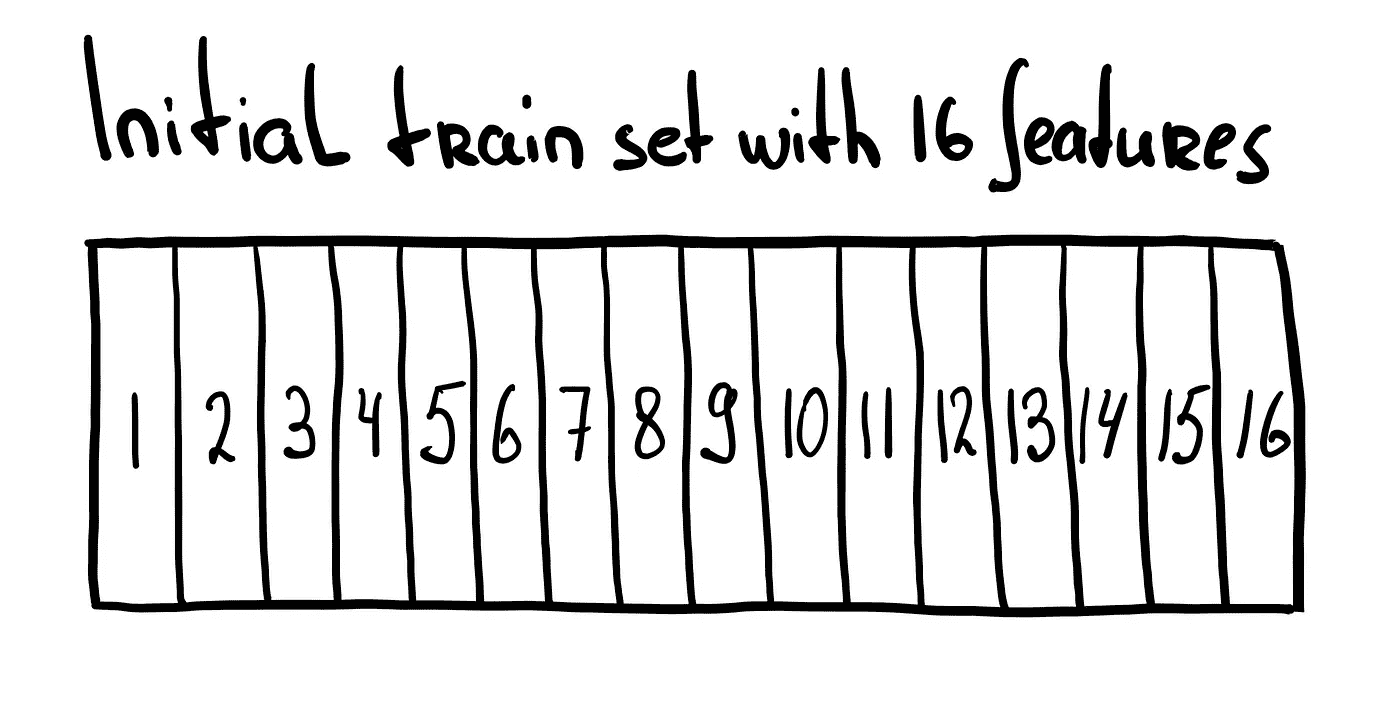 Initial train set with 16 features
1 2 3 4 5 6 7 8 9 10 11 12 13 14 15 16